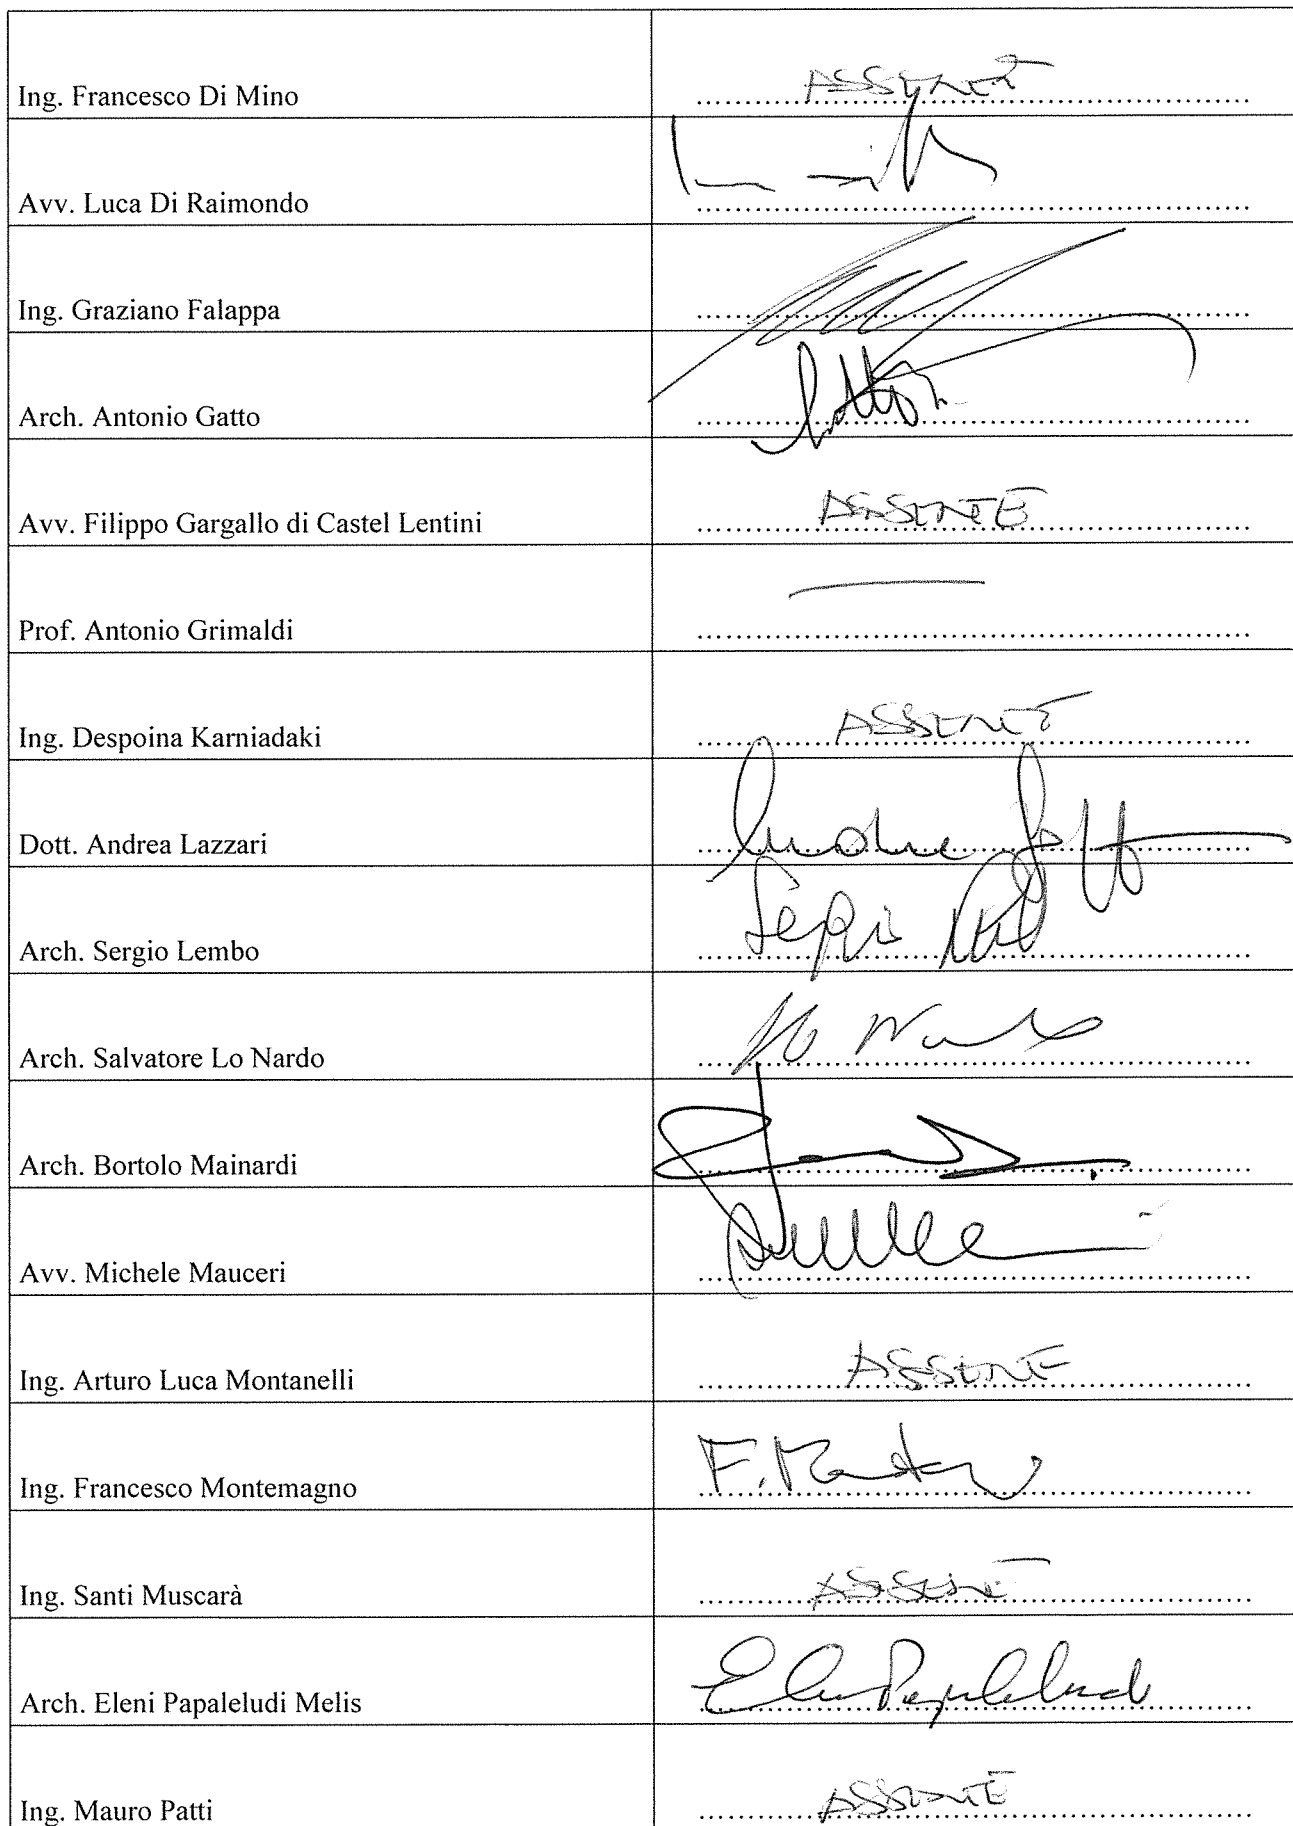 Ing. Francesco Di Mino ASSENTE
Avv. Luca Di Raimondo
Ing. Graziano Falappa
Arch. Antonio Gatto
Avv. Filippo Gargallo di Castel Lentini ASSENTE
Prof. Antonio Grimaldi
Ing. Despoina Karniadaki ASSENTE
Dott. Andrea Lazzari
Arch. Sergio Lembo Sergio
Arch. Salvatore Lo Nardo Lo Nardo
Arch. Bortolo Mainardi
Avv. Michele Mauceri
Ing. Arturo Luca Montanelli ASSENTE
Ing. Francesco Montemagno
Ing. Santi Muscarà ASSENTE
Arch. Eleni Papaleludi Melis
Ing. Mauro Patti ASSENTE